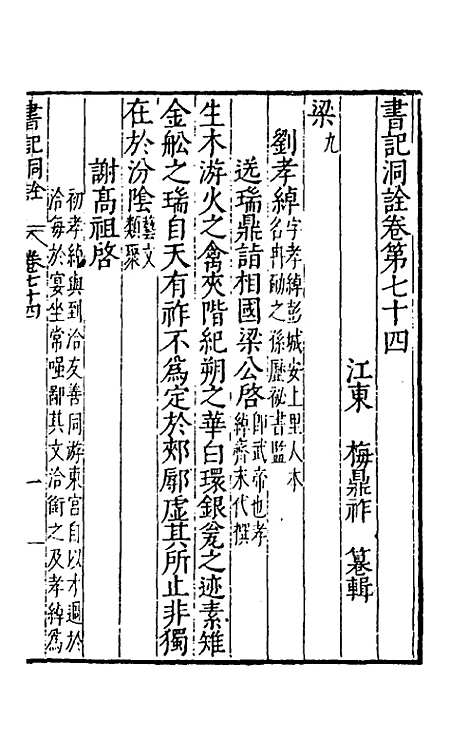 書記洞詮卷第七十四
江東 梅鼎祚 纂輯
梁九
劉孝綽 字孝綽彭城安上里人本
名冉勔之孫歷祕書監
送瑞鼎詣相國梁公啓 即武帝也孝
綽齊末代撰
生木游火之禽夾階紀朔之華白環銀瓮之迹素雉
金舩之瑞自天有祚不爲定於郟鄏虛其所止非獨
在於汾陰 藝文
類聚
謝高祖啓
初孝綽與到洽友善同游東宮自以才過於
洽每於宴坐常嗤鄙其文洽銜之及孝綽爲
書記洞詮 卷七十四 一